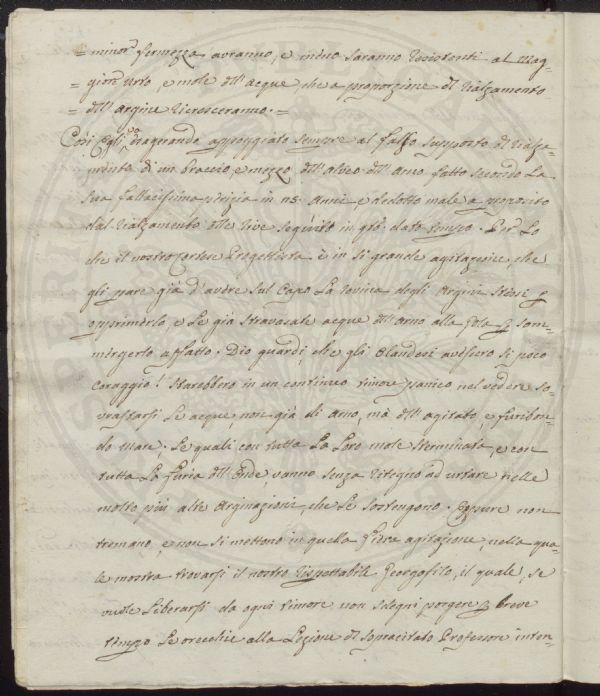 = minor fermezza avranno, e meno saranno resistenti al mag-
= gior Urto, e mole dell'acque che a proporzione del rialzamento
= dell'argine ricresceranno. =
Così Egli esagerando appoggiato sempre al falso supposto di rialza-
mento di un braccio, e mezzo dell'alveo dell'Arno fatto secondo la
sua fallacissima perizia in 115. Anni, e dedotto male a proposito
dal rialzamento delle rive seguito in detto dato tempo. Per lo
che il nostro cortese Progettista è in sì grande agitazione, che
gli pare già d'avere sul Capo la rovina degli Argini stessi p
opprimerlo, e le già stravasate acque dell'Arno alla gola p som-
mergerlo affatto. Dio guardi, che gli Olandesi avessero sì poco
coraggio! Starebbero in un continuo timore panico nel vedere so-
vrastarsi le acque, non già di Arno, mà dell'agitato, e furibon-
do Mare; Le quali con tutta la loro mole sterminata, e con
tutta la furia dell'Onde vanno senza ritegno ad urtare nelle
molto più alte Arginazioni, che le sostengono. Eppure non
tremano, e non si mettono in quella fiera agitazione, nella qua-
le mostra trovarsi il nostro rispettabile Georgofilo, il quale, se
vuole liberarsi da ogni timore non sdegni porgere p breve
tempo le orecchie alla Lezione del sopracitato Professore inten-